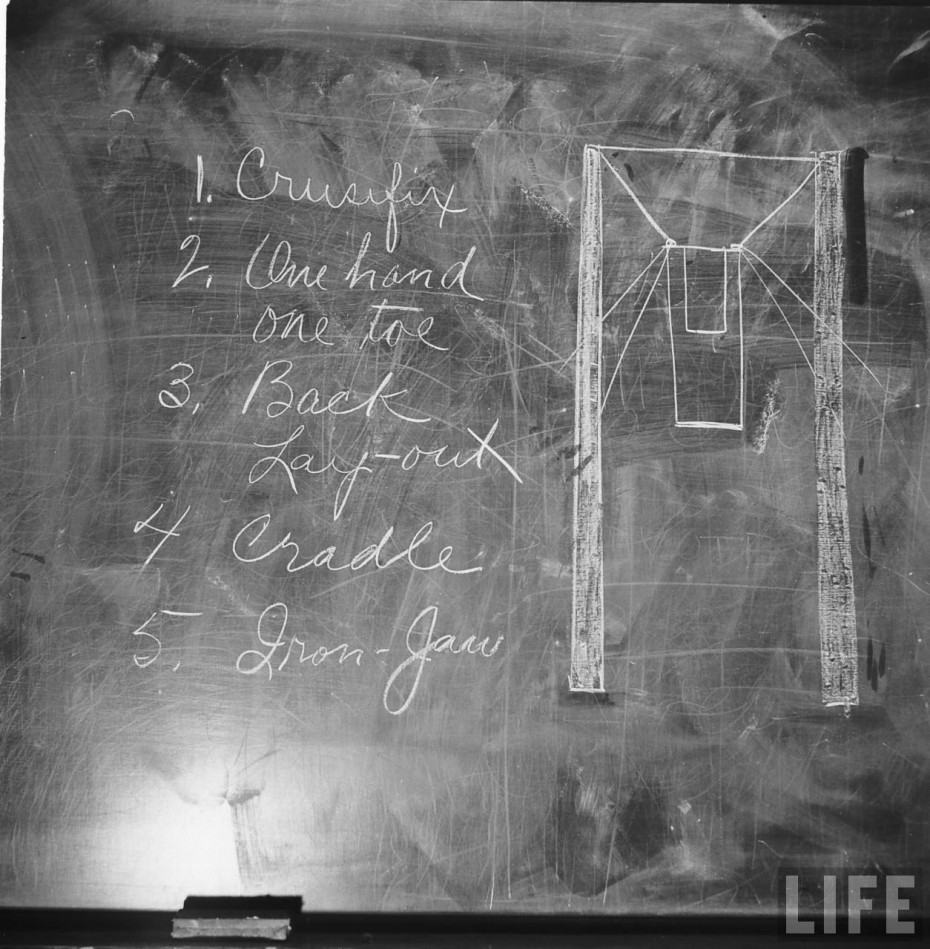 1. Crusifix
2. One hand
one toe
3. Back
Lay-out
4 Cradle
5. Iron-Jaw
LIFE